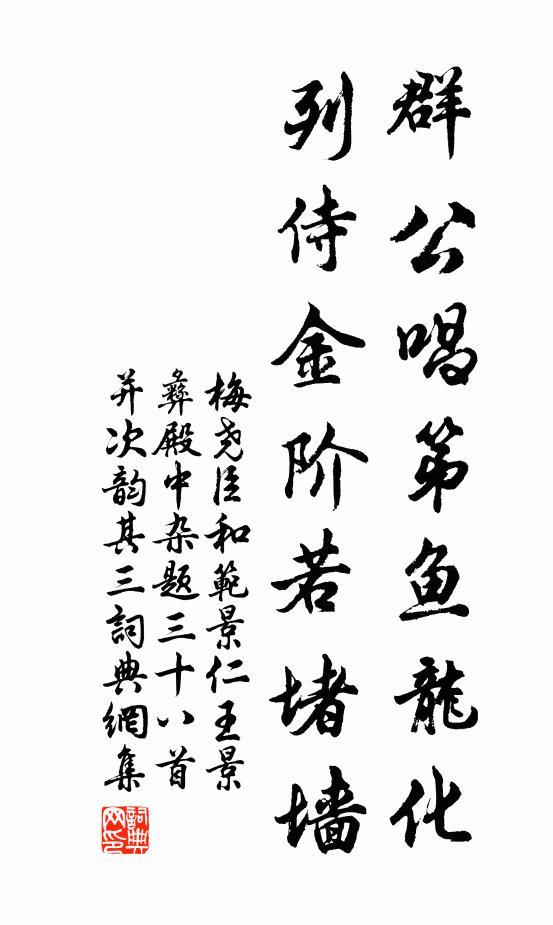 群公唱第鱼龍化
列侍金阶若堵墙
梅尧臣和範景仁王景
彝殿中杂题三十八首
并次韵其三詞典網集
詞典
网印